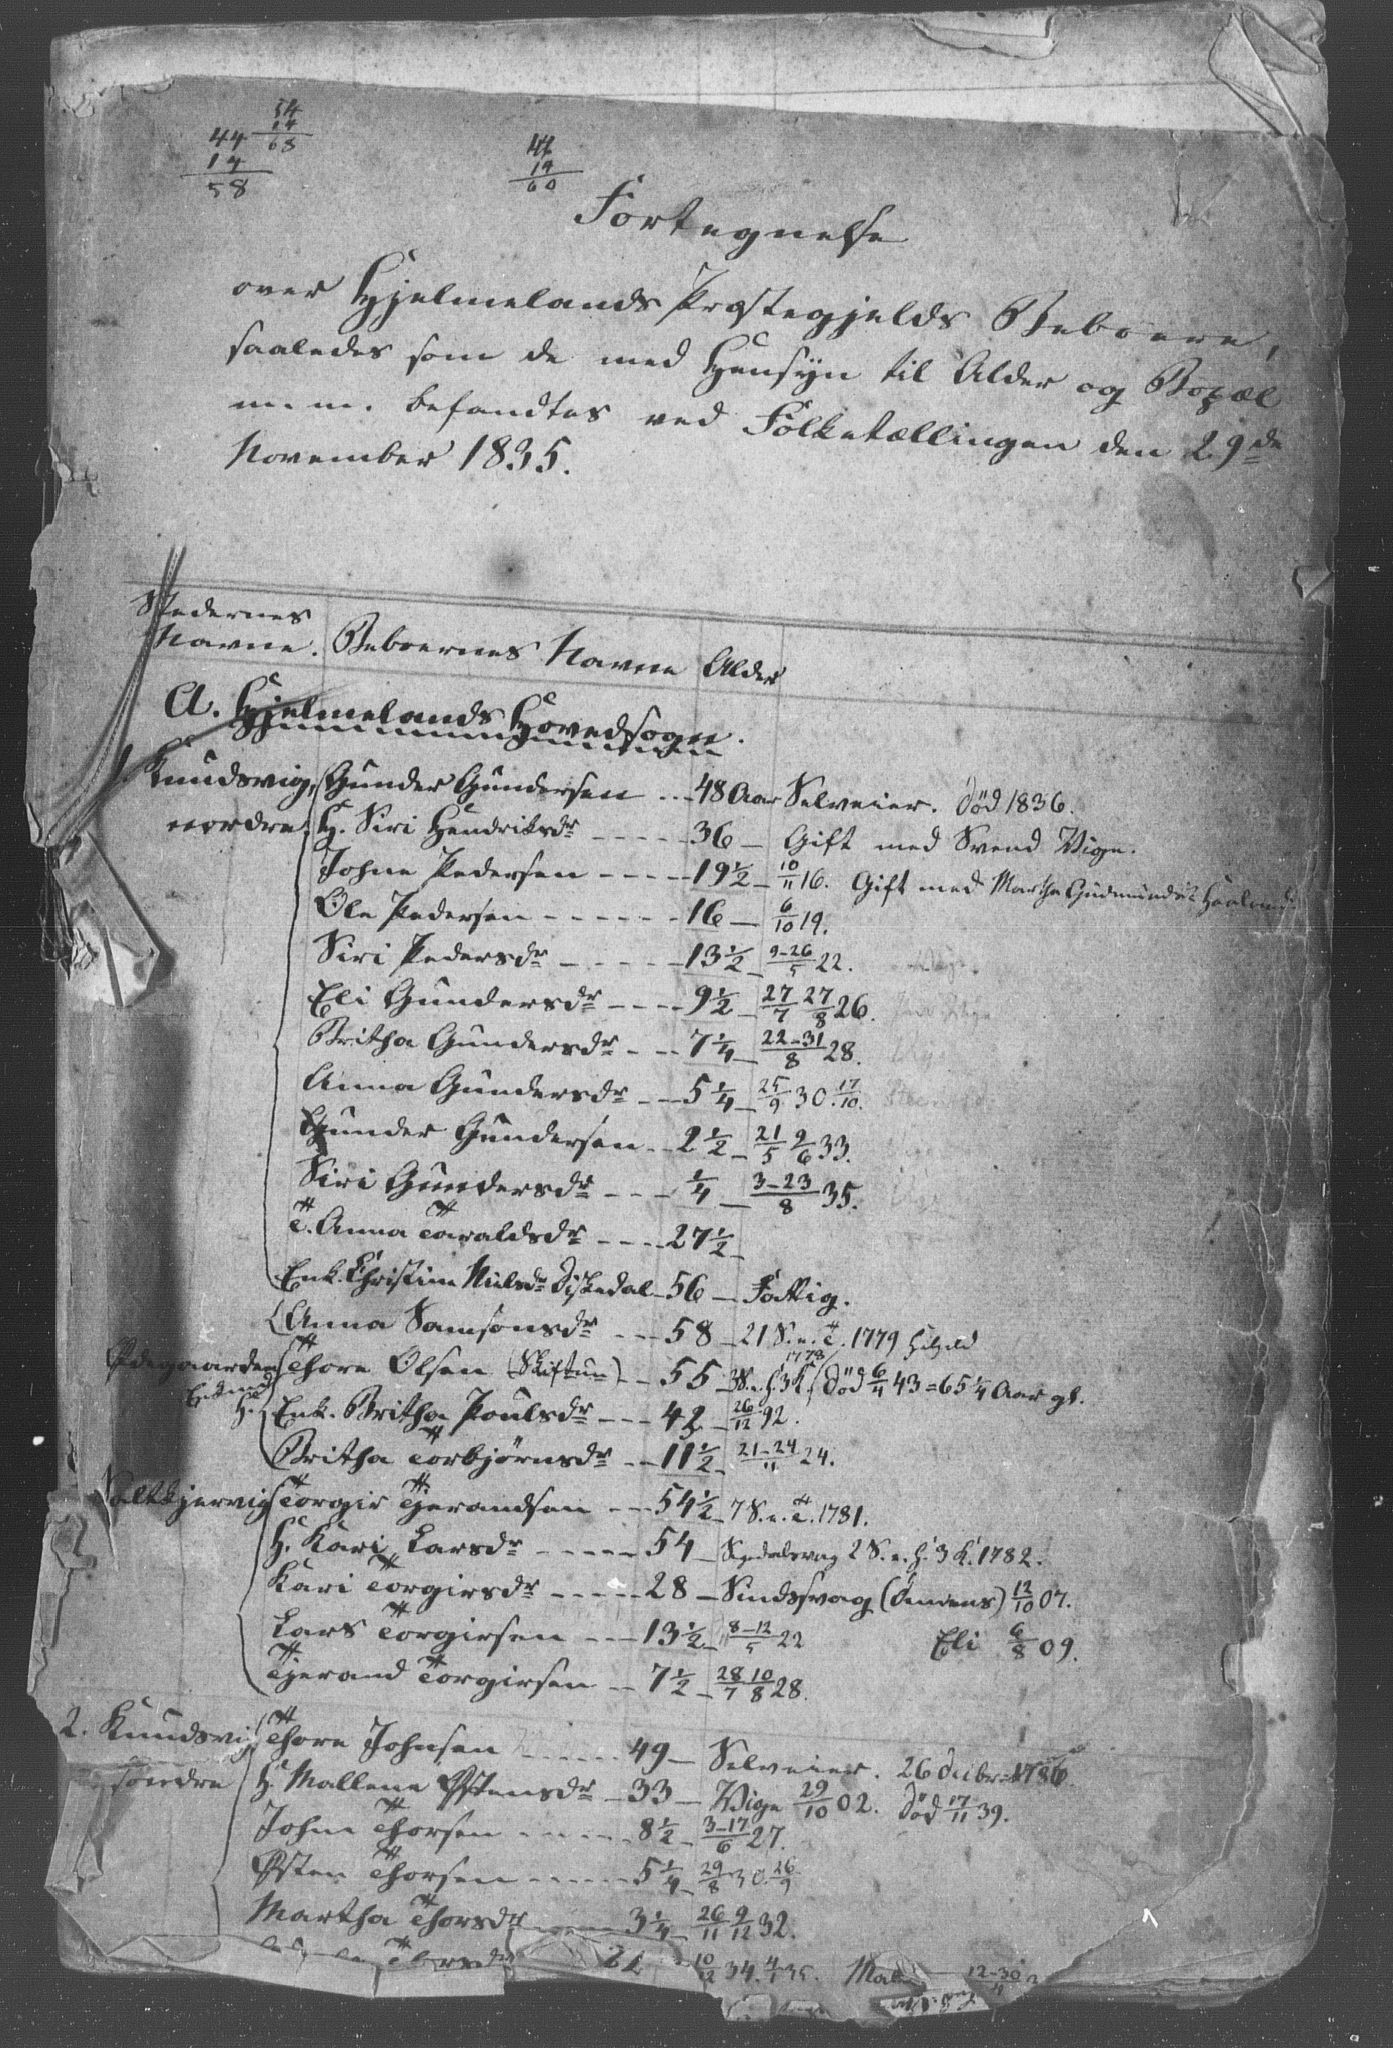 54
14
68
44
14
58
44
19
60
Fortegnelse
over Hjelmelands Præstegjelds Beboere,
saaledes som de med Hensyn til Alder og Bopæl
m. m. befandtes ved Folketællingen den 29de
November 1835.
Stedernes
Navne. Beboernes Navne Alder
A. Hjelmelands Hovedsogn.
1. Knudsvig, Gunder Gundersen 48 Aar Selveier. Død 1836.
nordre. H. Siri Hendriksdr 36 Gift med Svend Vige.
Johne Pedersen 19 1/2 10/11 16. Gift med Martha Gudmundsdr
Ole Pedersen 16 6/10 19.
Siri Pedersdr 13 1/2 9-26/5 22.
Eli Gundersdr 9 1/2 27/7 27/8 26.
Britha Gundersdr 7 1/4 22-31/8 28.
Anna Gundersdr 5 1/4 25/9 30. 17/10.
Gunder Gundersen 2 1/2 21/5 9/6 33.
Siri Gundersdr 1/4 3-23/8 35.
T. Anna Taraldsdr 27 1/2
Enk. Christine Nilsdr 56 Fattig.
Anna Samsonsdr 58 21 S. e. T. 1779
Ødegaarden Thore Olsen (Skiftun) 55 Død 6/4 43 = 65 1/4 Aar gl.
1778
H. Enk. Britha Poulsdr 42 26/12 92.
Britha Torbjørnsdr 11 1/2 21-24/11 24.
Saltkjervig Torgir Tjerandsen 54 1/2 7 S. e. T. 1781.
H. Kari Larsdr 54 2 S. e. H. 3 K. 1782.
Kari Torgirsdr 28 Sindssvag 12/10 07.
Lars Torgirsen 13 1/2 8-12/5 22 Eli 6/8 09.
Tjerand Torgirsen 7 1/2 28/7 10/8 28.
2. Knudsvig Thore Johnsen 49 Selveier. 26 Decbr 1786
søndre H. Mallene Østensdr 33 Vige 29/10 02. Død 17/11 39.
Johne Thorsen 8 1/2 3-17/6 27.
Østen Thorsen 5 1/4 29/8 30 26/9
Martha Thorsdr 3 1/4 26/11 9/12 32.
Thorsdr 10/12 34. 4/1 35. 12-30